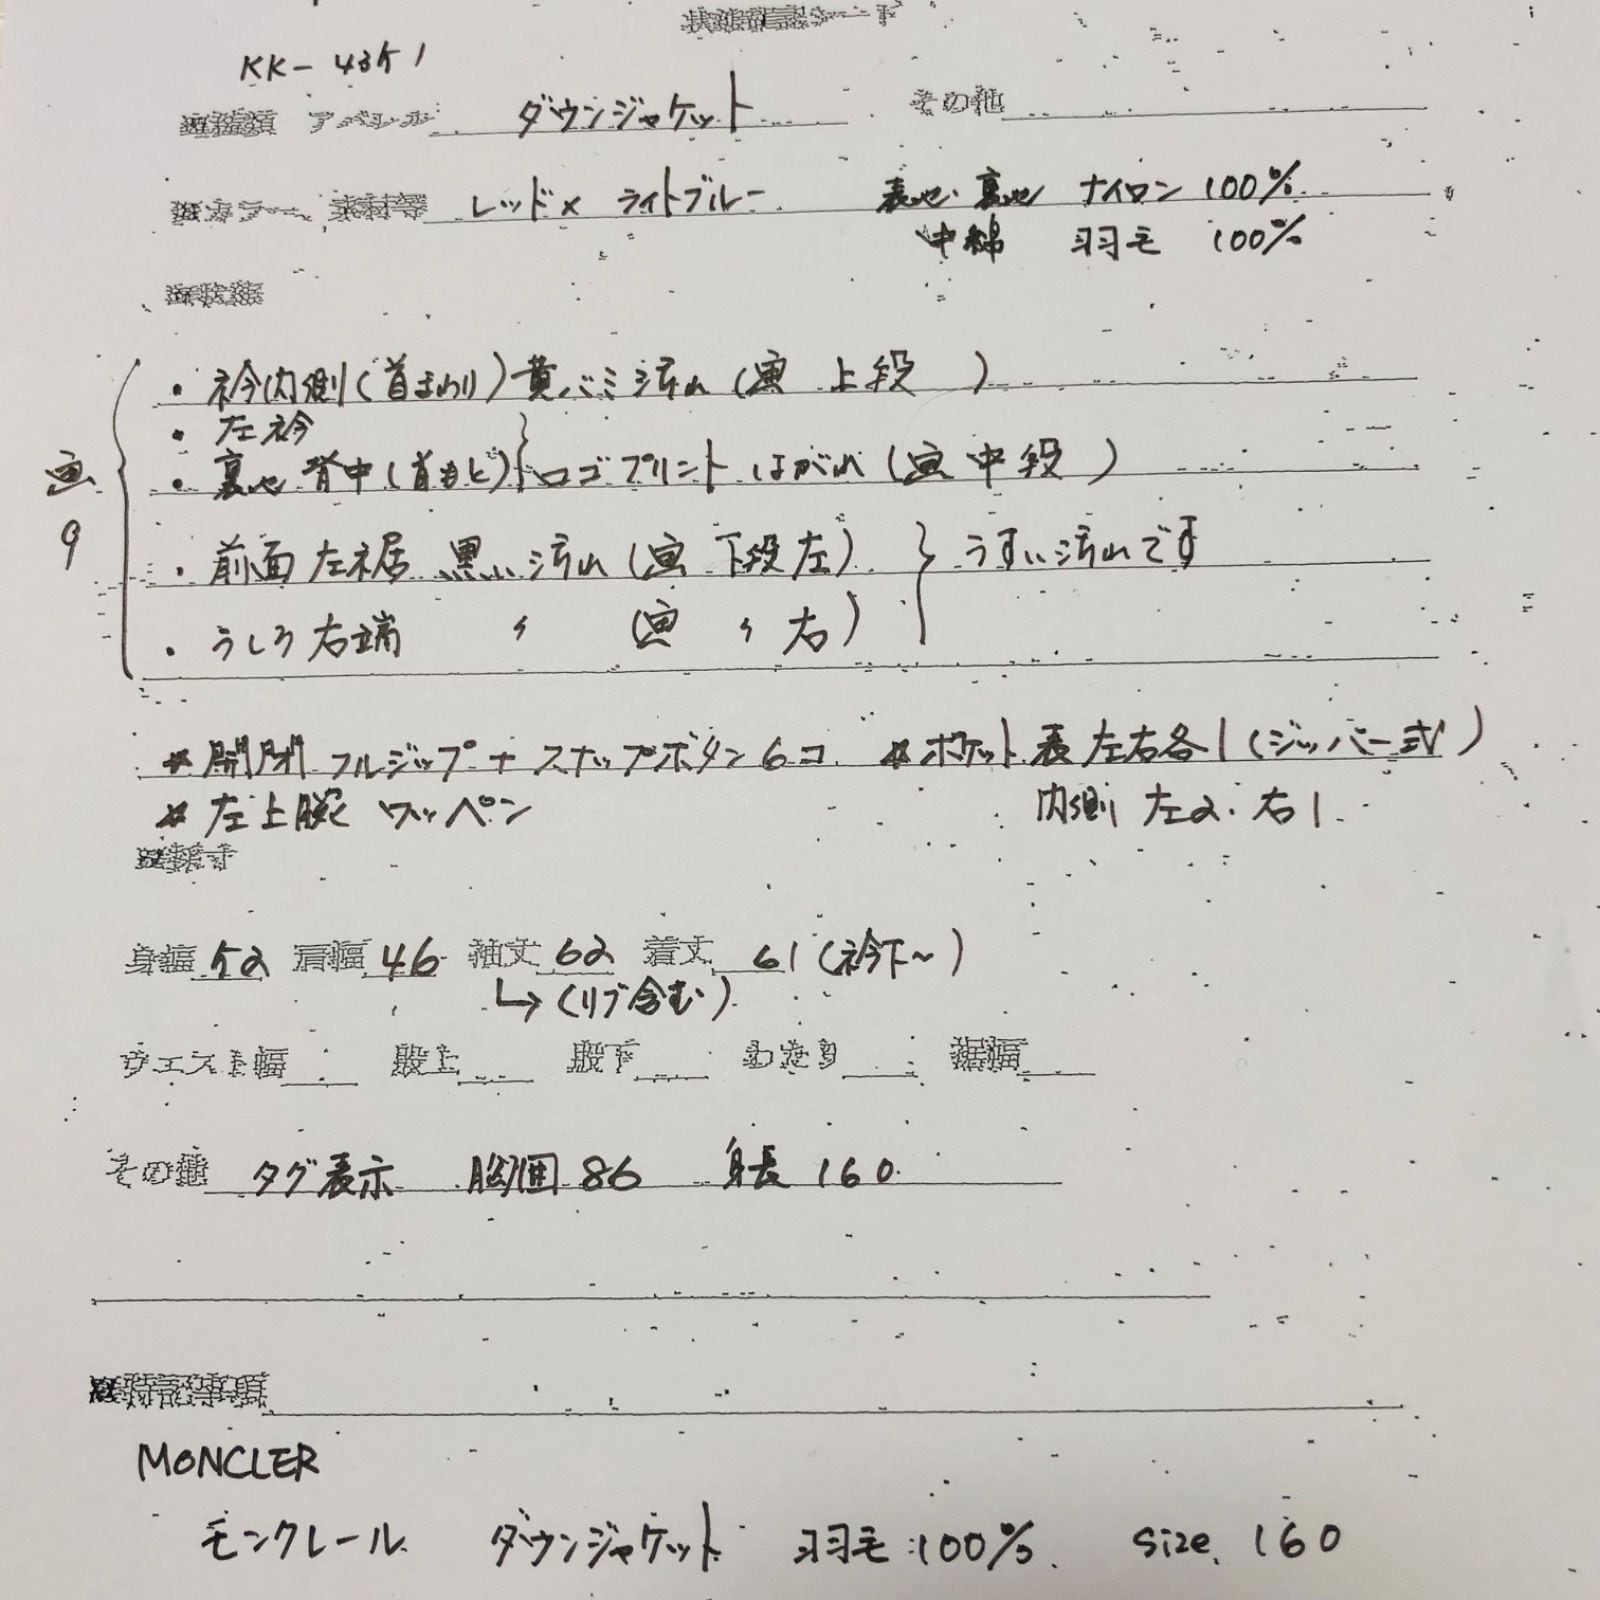 状態確認シート
KK-4351
アパレル ダウンジャケット その他
カラー、素材等 レッド× ライトブルー 表地・裏地 ナイロン 100%
中綿 羽毛 100%
・衿内側(首まわり)黄バミ汚れ(画 上段 )
・左衿
・裏地 背中(首もと) ロゴプリント はがれ(画 中段 )
画9
・前面 左裾 黒い汚れ(画 下段左) うすい汚れです
・うしろ 右端 〃 (画 〃 右)
※開閉 フルジップ+スナップボタン6コ ※ポケット 表 左右各1(ジッパー式)
※左上腕 ワッペン 内側 左2・右1
身幅 52 肩幅 46 袖丈 62 着丈 61(衿下~)
↳(リブ含む)
ウエスト幅 股上 股下 わたり 裾幅
その他 タグ表示 胸囲 86 身長 160
特記事項
MONCLER
モンクレール ダウンジャケット 羽毛 100% size 160